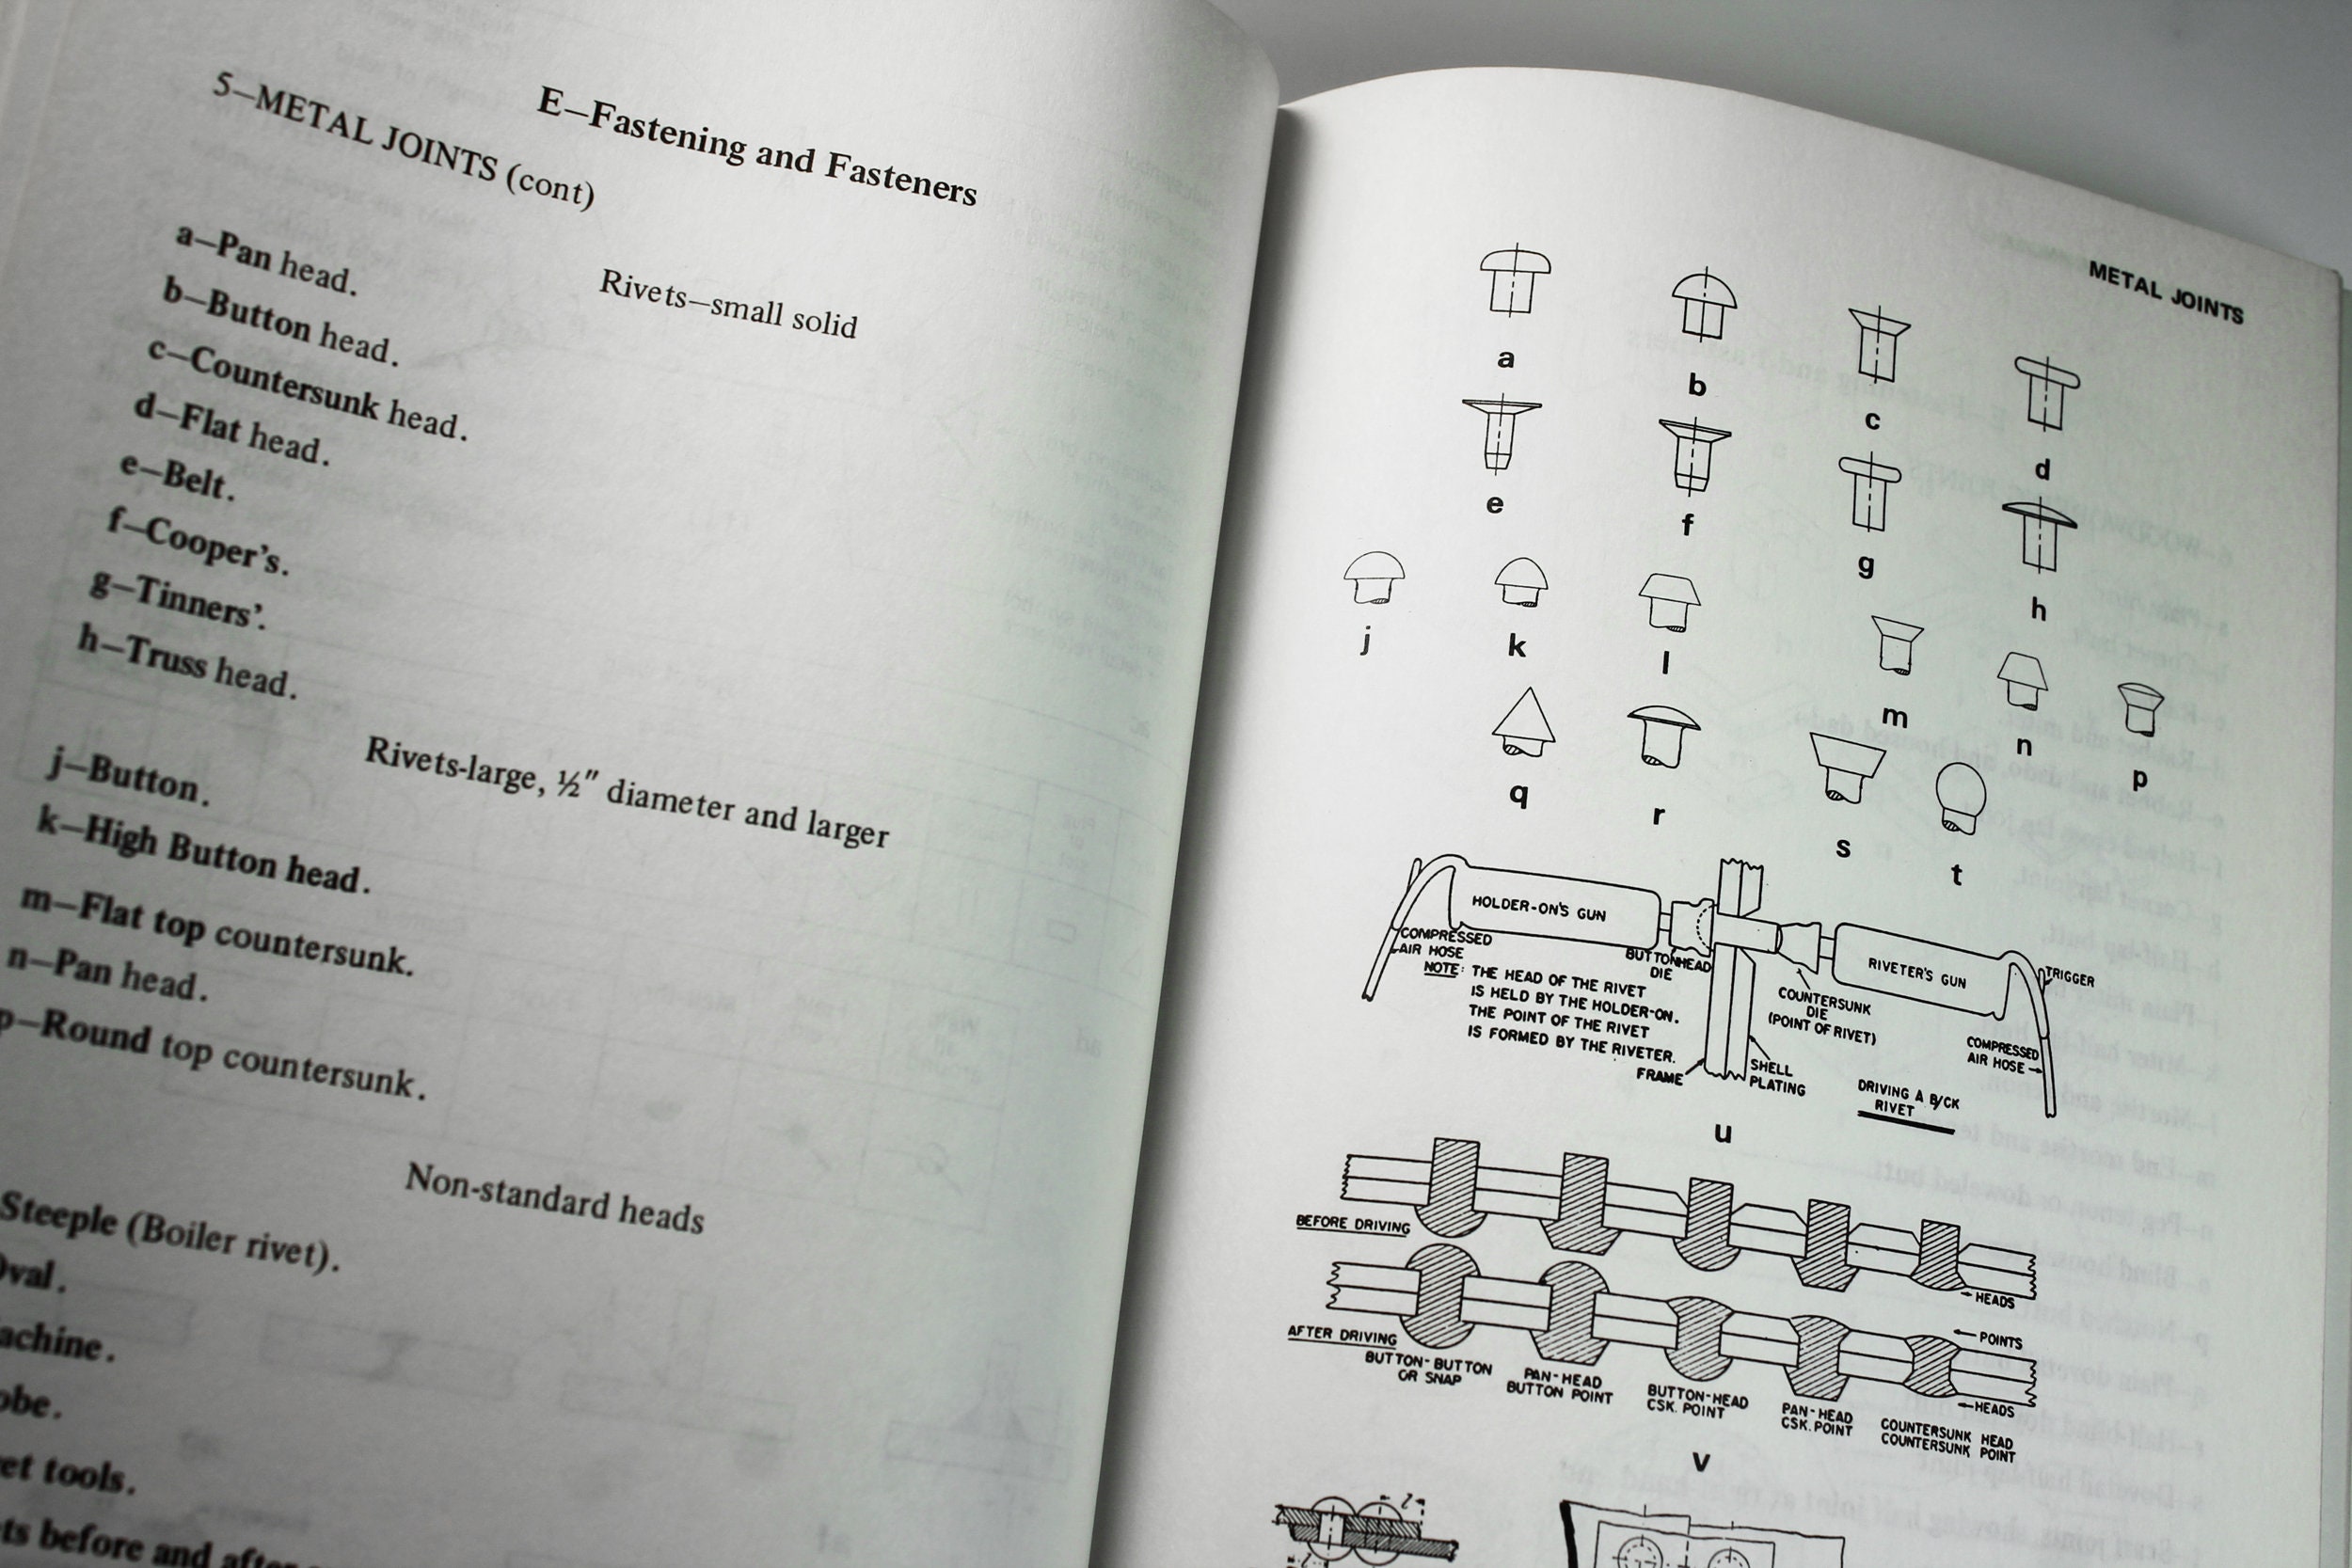 E—Fastening and Fasteners
5—METAL JOINTS (cont)
Rivets—small solid
a—Pan head.
b—Button head.
c—Countersunk head.
d—Flat head.
e—Belt.
f—Cooper’s.
g—Tinners’.
h—Truss head.
Rivets-large, ½″ diameter and larger
j—Button.
k—High Button head.
m—Flat top countersunk.
n—Pan head.
p—Round top countersunk.
Non-standard heads
Steeple (Boiler rivet).
tools.
before and
METAL JOINTS
a
b
c
d
e
f
g
h
j
k
l
m
n
p
q
r
s
t
HOLDER-ON'S GUN
COMPRESSED
AIR HOSE
BUTTONHEAD
DIE
NOTE: THE HEAD OF THE RIVET
IS HELD BY THE HOLDER-ON.
THE POINT OF THE RIVET
IS FORMED BY THE RIVETER.
FRAME
SHELL
PLATING
COUNTERSUNK
DIE
(POINT OF RIVET)
RIVETER'S GUN
TRIGGER
COMPRESSED
AIR HOSE
DRIVING A B/CK
RIVET
u
BEFORE DRIVING
HEADS
AFTER DRIVING
POINTS
HEADS
BUTTON-BUTTON
OR SNAP
PAN-HEAD
BUTTON POINT
BUTTON-HEAD
CSK. POINT
PAN-HEAD
CSK. POINT
COUNTERSUNK HEAD
COUNTERSUNK POINT
v
l